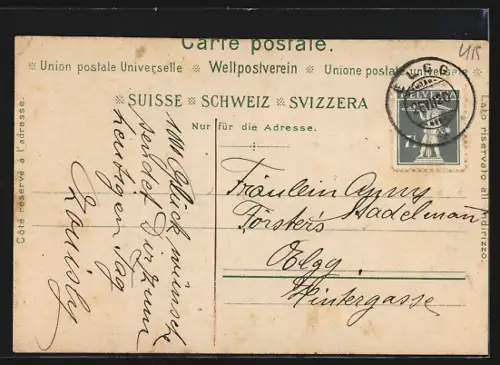 Carte postale.
Union postale Universelle Weltpostverein Unione postale universale
SUISSE SCHWEIZ SVIZZERA
Nur für die Adresse.
Côté réservé à l'adresse.
Lato riservato all'indirizzo.
ELGG
HELVETIA
7½
Glückwünsche
sendet Dir zum
heutigen Tag
Fräulein
Stadelmann
Försters
Elgg.
Hintergasse